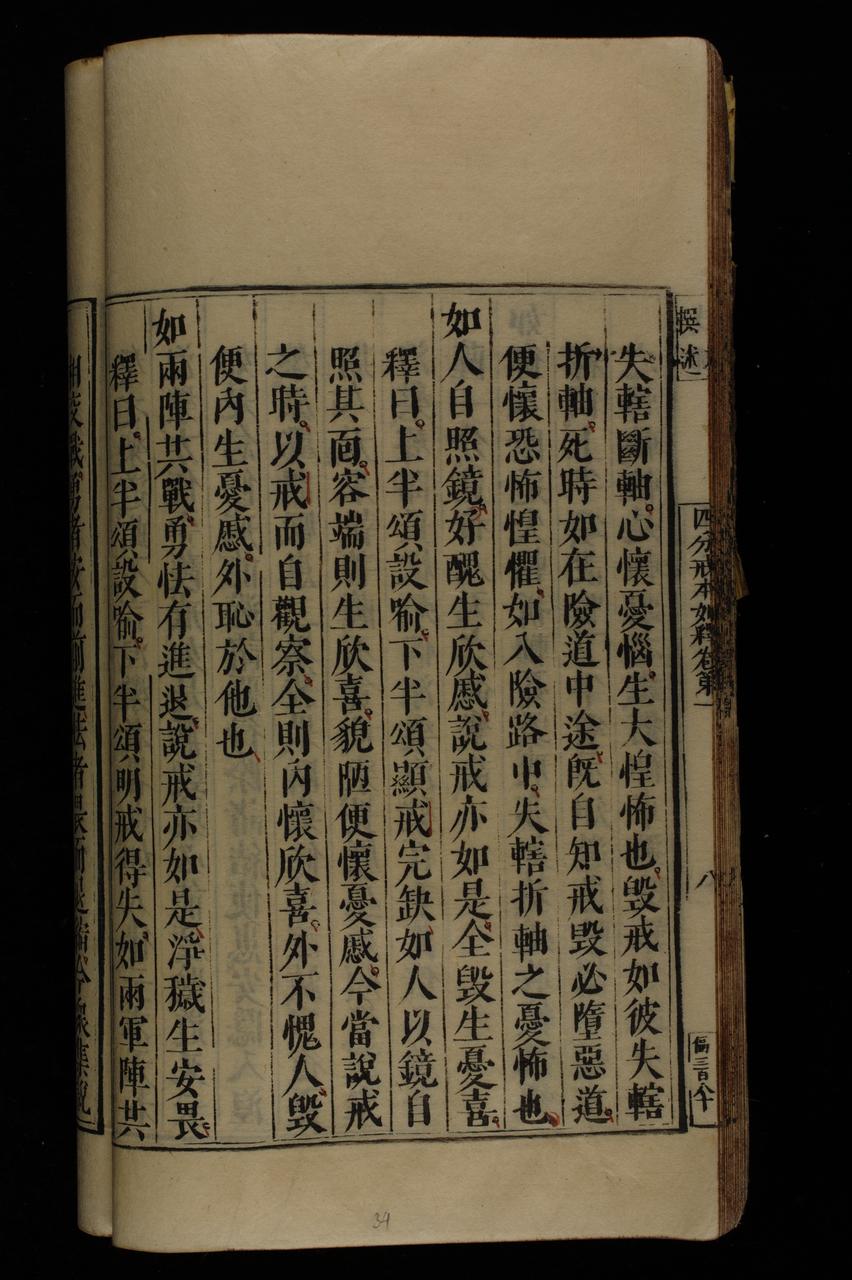 撰述
四分戒本如釋卷第一
八
失轄斷軸心懷憂惱生大惶怖也毀戒如彼失轄
折軸死時如在險道中途旣自知戒毀必墮惡道
便懷恐怖惶懼如入險路中失轄折軸之憂怖也
如人自照鏡好醜生欣慼說戒亦如是全毀生憂喜
釋曰上半頌設喻下半頌顯戒完缺如人以鏡自
照其面容端則生欣喜貌陋便懷憂慼今當說戒
之時以戒而自觀察全則內懷欣喜外不愧人毀
便內生憂慼外恥於他也
如兩陣共戰勇怯有進退說戒亦如是淨穢生安畏
釋曰上半頌設喻下半頌明戒得失如兩軍陣共
34